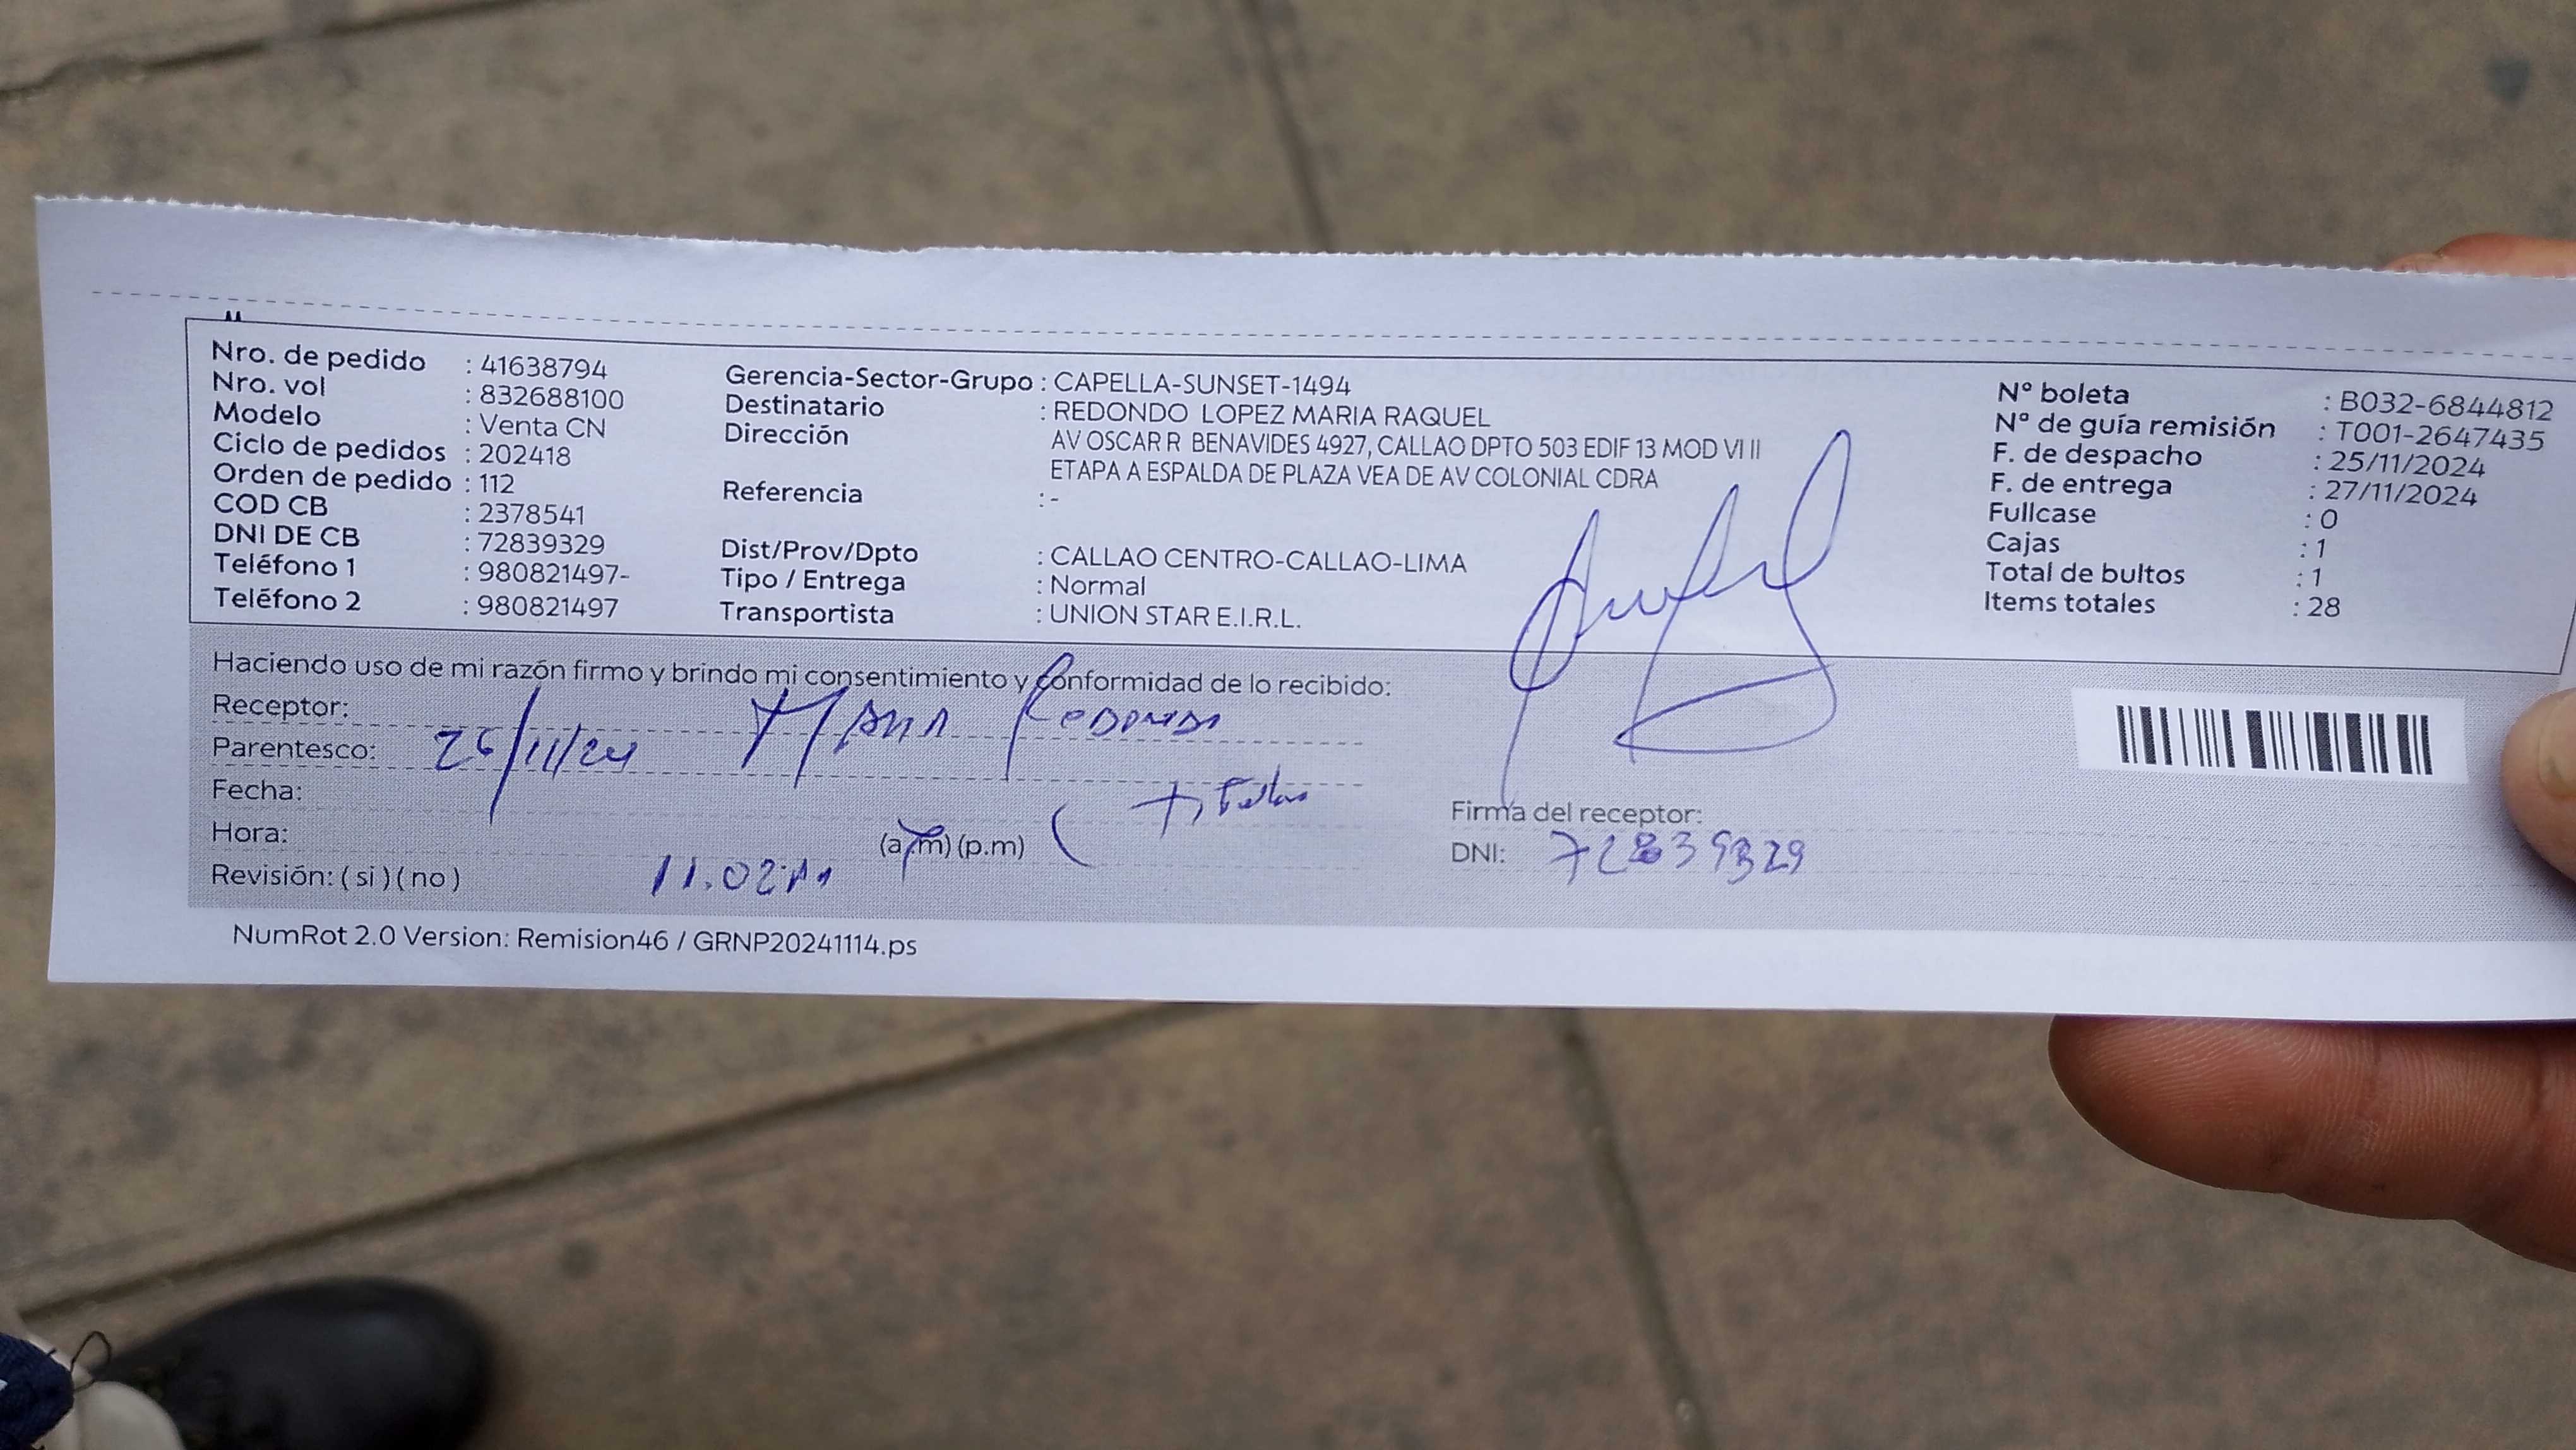 Nro. de pedido : 41638794
Nro. vol : 832688100
Modelo : Venta CN
Ciclo de pedidos : 202418
Orden de pedido : 112
COD CB : 2378541
DNI DE CB : 72839329
Teléfono 1 : 980821497-
Teléfono 2 : 980821497
Gerencia-Sector-Grupo : CAPELLA-SUNSET-1494
Destinatario : REDONDO LOPEZ MARIA RAQUEL
Dirección AV OSCAR R BENAVIDES 4927, CALLAO DPTO 503 EDIF 13 MOD VI II
ETAPA A ESPALDA DE PLAZA VEA DE AV COLONIAL CDRA
Referencia : -
Dist/Prov/Dpto : CALLAO CENTRO-CALLAO-LIMA
Tipo / Entrega : Normal
Transportista : UNION STAR E.I.R.L.
Nº boleta : B032-6844812
Nº de guía remisión : T001-2647435
F. de despacho : 25/11/2024
F. de entrega : 27/11/2024
Fullcase : 0
Cajas : 1
Total de bultos : 1
Items totales : 28
Haciendo uso de mi razón firmo y brindo mi consentimiento y conformidad de lo recibido:
Receptor: Maria Redondo
Parentesco: 26/11/24
Fecha: Titular
Hora: (a.m) (p.m)
Revisión: ( si ) ( no ) 11.02
Firma del receptor:
DNI: 72839329
NumRot 2.0 Version: Remision46 / GRNP20241114.ps